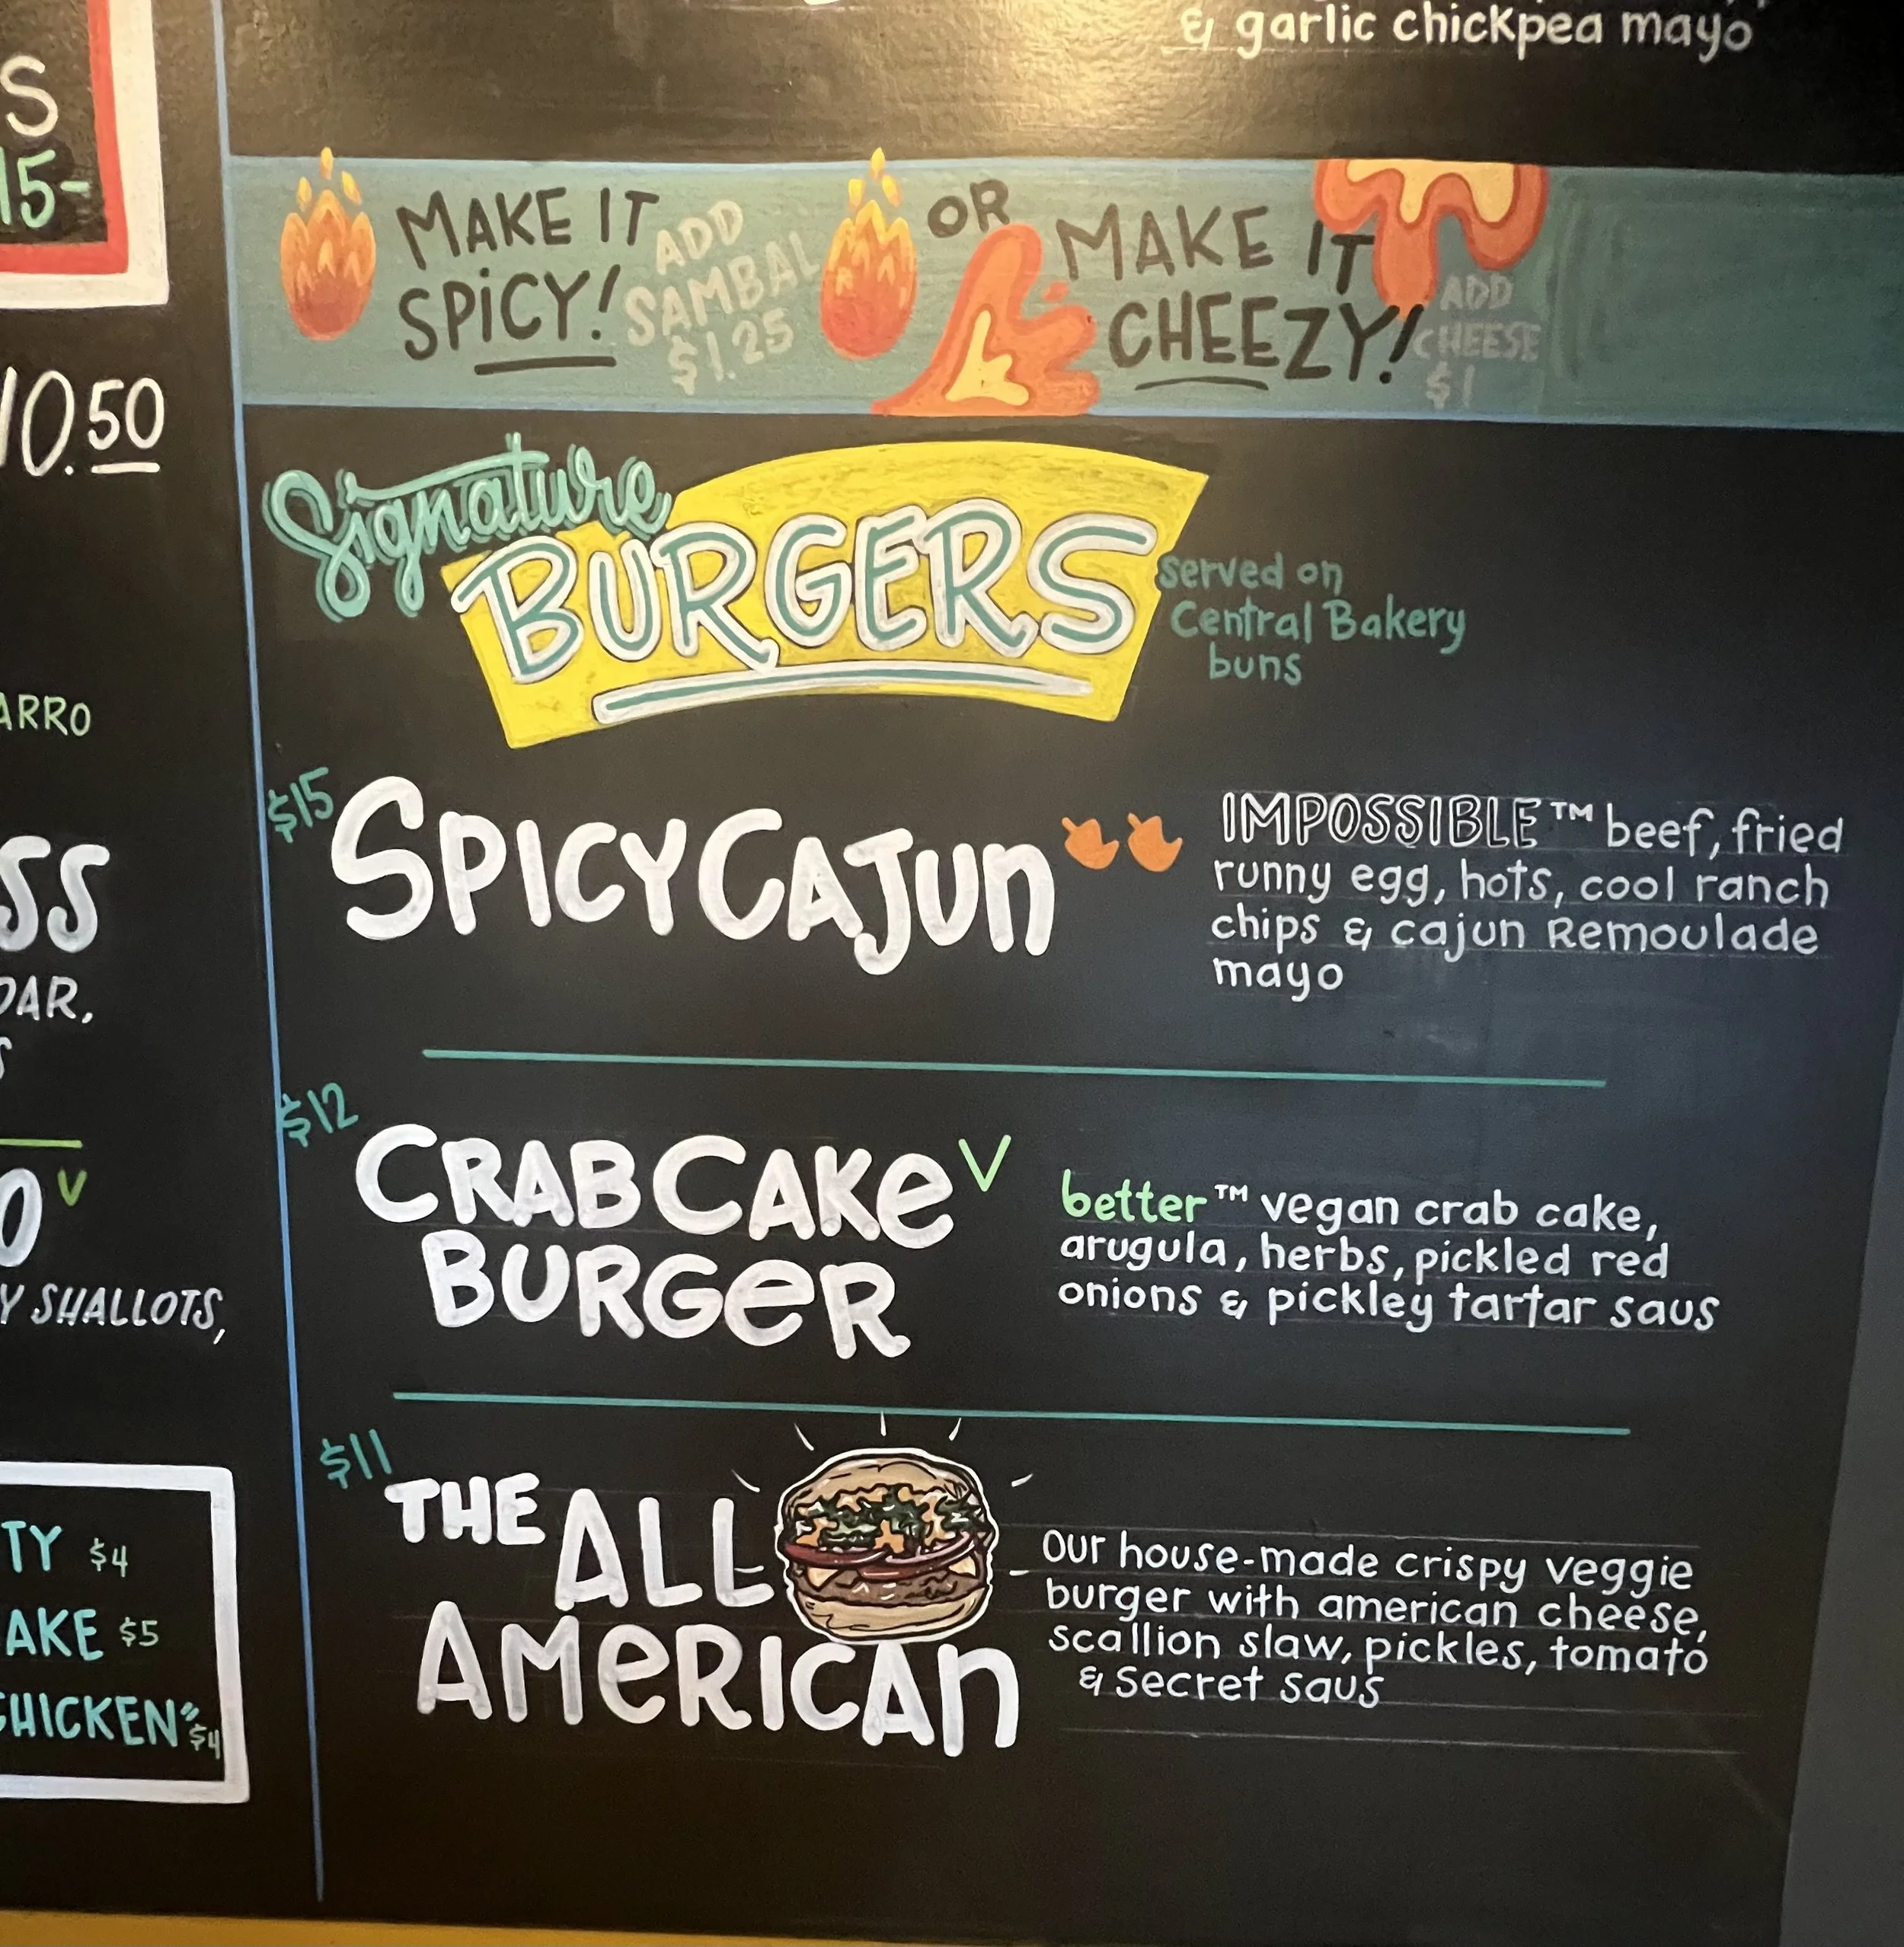 & garlic chickpea mayo
S
15-
10.50
ARRO
SS
DAR,
V
Y SHALLOTS,
TY $4
AKE $5
CHICKEN" $4
MAKE IT
SPiCY!
ADD
SAMBAL
$1.25
OR
MAKE IT
CHEEZY!
ADD
CHEESE
$1
Signature
BURGERS
served on
Central Bakery
buns
$15
SPICY CAJUn
IMPOSSIBLE™ beef, fried
runny egg, hots, cool ranch
chips & cajun Remoulade
mayo
$12
CRAB CAKe V
BURGeR
better™ vegan crab cake,
arugula, herbs, pickled red
onions & pickley tartar saus
$11
THE ALL
AMeRICAn
Our house-made crispy veggie
burger with american cheese,
scallion slaw, pickles, tomato
& secret saus